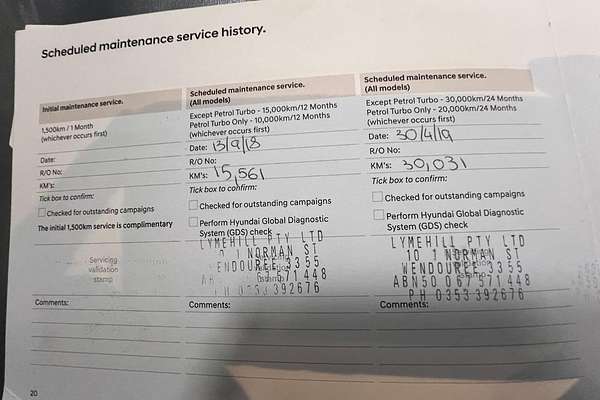 Scheduled maintenance service history.
Initial maintenance service.
1,500km / 1 Month
(whichever occurs first)
Date:
R/O No:
KM's:
Tick box to confirm:
Checked for outstanding campaigns
The initial 1,500km service is complimentary
Servicing
validation
stamp
Comments:
Scheduled maintenance service.
(All models)
Except Petrol Turbo - 15,000km/12 Months
Petrol Turbo Only - 10,000km/12 Months
(whichever occurs first)
Date: 13/9/18
R/O No:
KM's: 15,561
Tick box to confirm:
Checked for outstanding campaigns
Perform Hyundai Global Diagnostic
System (GDS) check
LYMEHILL PTY LTD
NORMAN ST
WENDOUREE 3355
67 571 448
PH 0353 392676
Comments:
Scheduled maintenance service.
(All models)
Except Petrol Turbo - 30,000km/24 Months
Petrol Turbo Only - 20,000km/24 Months
(whichever occurs first)
Date: 30/4/19
R/O No:
KM's: 30,031
Tick box to confirm:
Checked for outstanding campaigns
Perform Hyundai Global Diagnostic
System (GDS) check
LYMEHILL PTY LTD
NORMAN ST
WENDOUREE 3355
ABN50 067 571 448
PH 0353 392676
Comments:
20